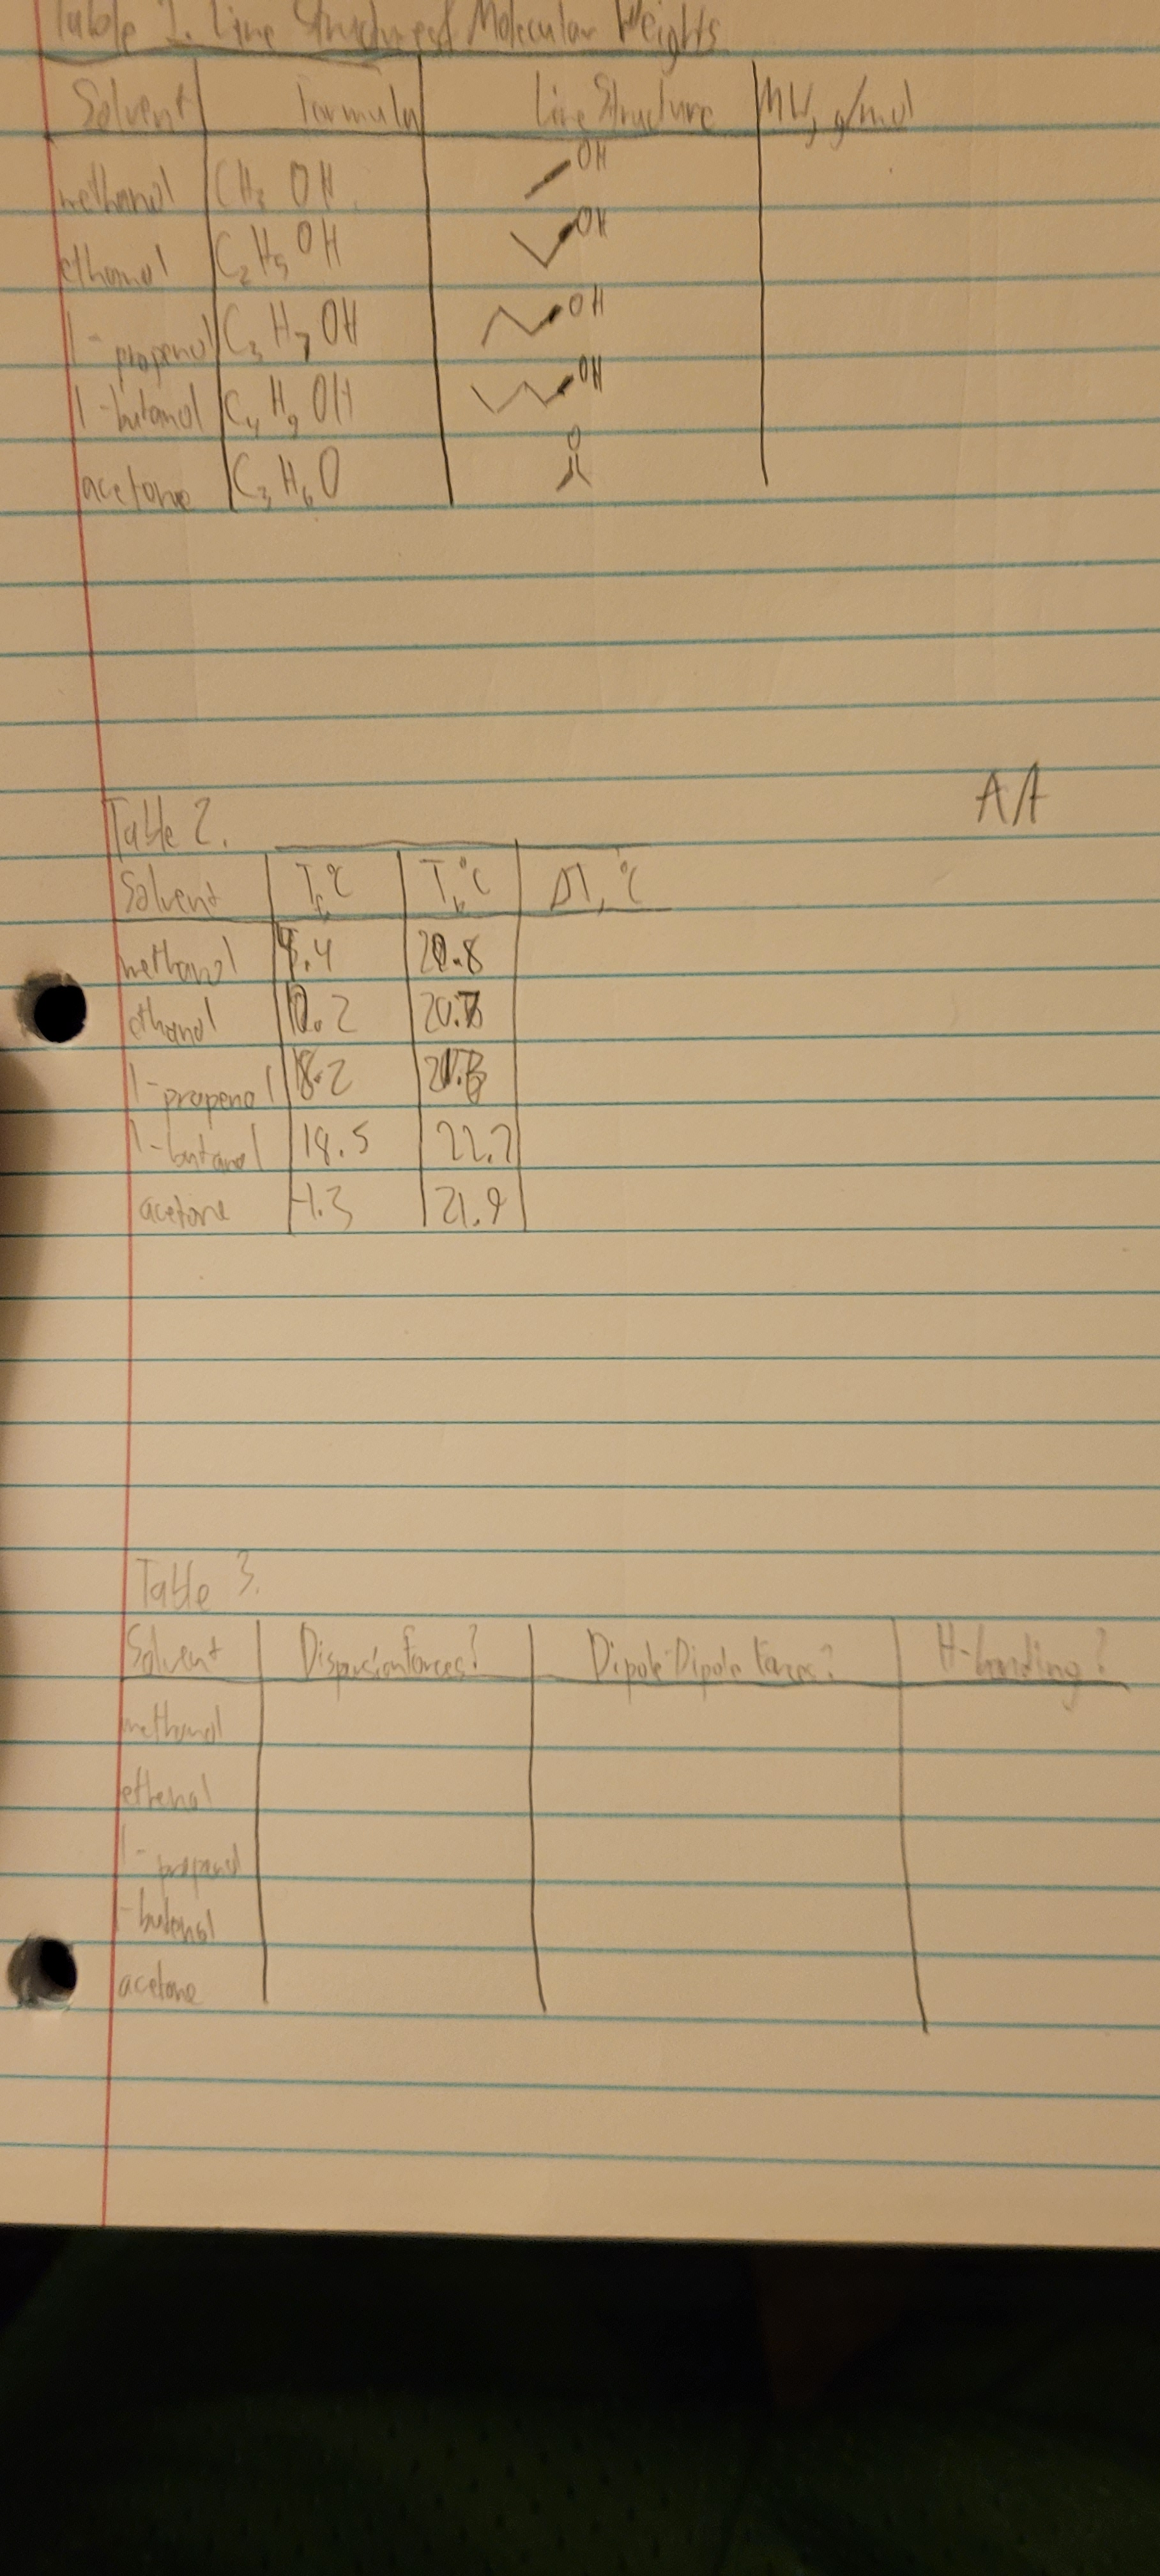 Table 1. Line Structures of Molecular Weights
Solvent Formula Line Structure MW, g/mol
methanol CH3 OH OH
ethanol C2 H5 OH OH
1-propanol C3 H7 OH OH
1-butanol C4 H9 OH OH
acetone C3 H6 O O
AA
Table 2.
Solvent Tf, °C Ti, °C ΔT, °C
methanol .4 .8
ethanol .2 20.
1-propanol 18.2
1-butanol 18.5 22.2
acetone -1.3 21.9
Table 3.
Solvent Dispersion forces? Dipole-Dipole forces? H-bonding?
methanol
ethanol
1-propanol
1-butanol
acetone